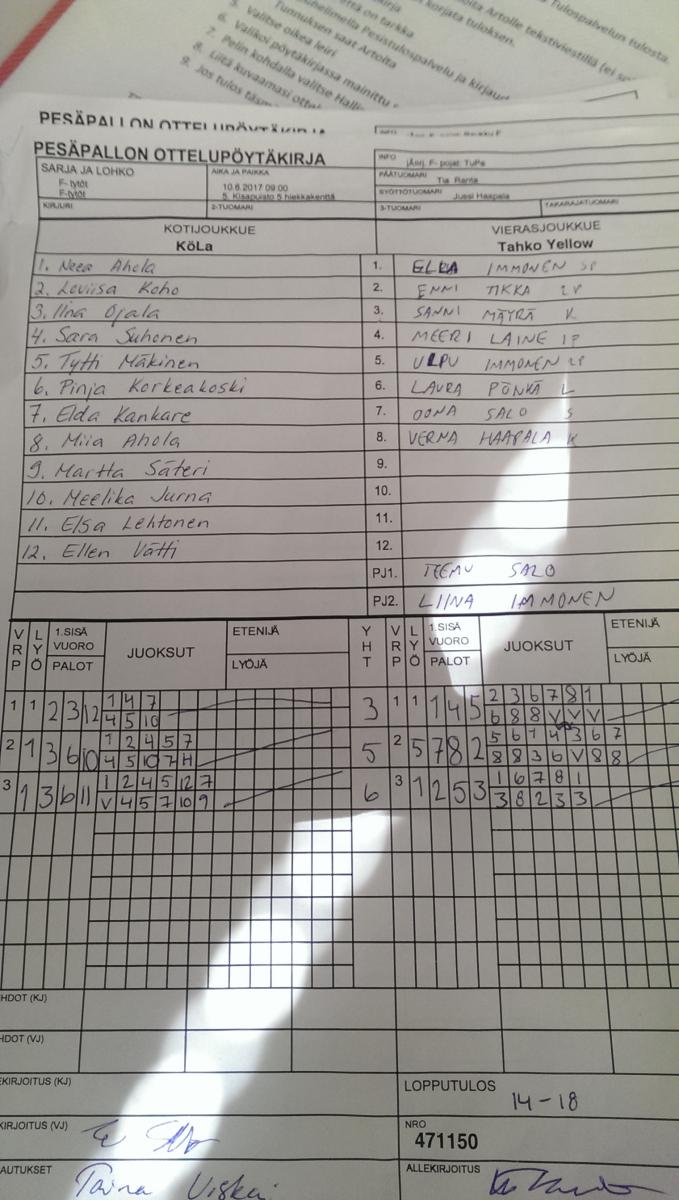 korjata tuloksen.
Artolle tekstiviestillä (ei
Tulospalvelun tulosta.
että on tarkka
Pesistulospalvelu ja kirjaud
5. Valitse oikea leiri
Tunnuksen saat Artolta
6. Valikoi pöytäkirjassa mainittu
7. Pelin kohdalla valitse
8. Liitä kuvaamasi
9. Jos tulos
PESÄPALLON OTTELUPÖYTÄKIRJA
PESÄPALLON OTTELUPÖYTÄKIRJA
INFO
F- pojat TuPe
SARJA JA LOHKO
F- tytöt
F-tytöt
AIKA JA PAIKKA
10.6.2017 09:00
5. Kisapuisto 5 hiekkakenttä
PÄÄTUOMARI
Tia Ranta
SYÖTTÖTUOMARI
Jussi Haapala
KIRJURI
2-TUOMARI
3-TUOMARI
TAKARAJATUOMARI
KOTIJOUKKUE
KöLa
VIERASJOUKKUE
Tahko Yellow
1. Neea Ahola
1. ELLA IMMONEN SP
2. Loviisa Koho
2. ENNI TIKKA 2V
3. Iina Ojala
3. SANNI MÄYRÄ K
4. Sara Suhonen
4. MEERI LAINE 1P
5. Tytti Mäkinen
5. ULPU IMMONEN 2P
6. Pinja Korkeakoski
6. LAURA PÖNKÄ L
7. Elda Kankare
7. OONA SALO S
8. Miia Ahola
8. VERNA HAAPALA K
9. Martta Säteri
9.
10. Meelika Jurna
10.
11. Elsa Lehtonen
11.
12. Ellen Vätti
12.
PJ1. TEEMU SALO
PJ2. LIINA IMMONEN
VRP LYÖ 1.SISÄ VUORO PALOT JUOKSUT ETENIJÄ LYÖJÄ YHT VRP LYÖ 1.SISÄ VUORO PALOT JUOKSUT ETENIJÄ LYÖJÄ
1 1 2 3 12 1 4 7 3 1 1 1 4 5 2 3 6 7 8 1
4 5 10 6 8 8 V V V
2 1 3 6 10 1 2 4 5 7 5 2 5 7 8 2 5 6 1 4 3 6 7
4 5 10 7 H 8 8 3 6 V 8 8
3 1 3 6 11 1 2 4 5 12 7 6 3 1 2 5 3 1 6 7 8 1
V 4 5 7 10 9 3 8 2 3 3
HDOT (KJ)
HDOT (VJ)
EKIRJOITUS (KJ)
LOPPUTULOS
14-18
KIRJOITUS (VJ)
NRO
471150
AUTUKSET
Taina
ALLEKIRJOITUS